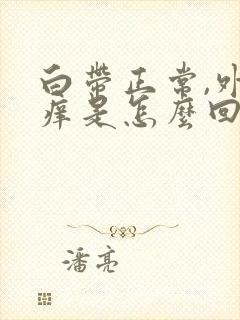 白帶正常,外
痒是怎麼回
潘亮